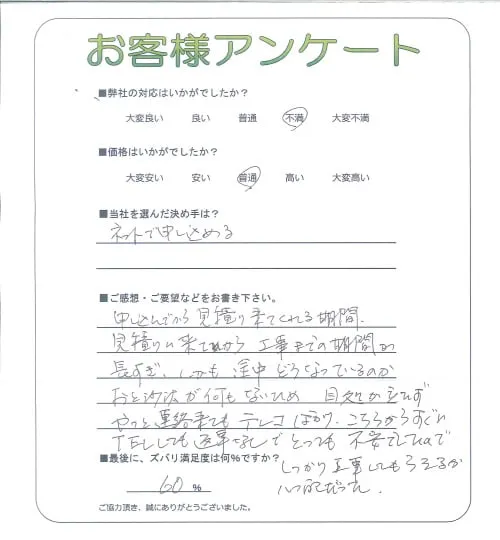 お客様アンケート
■弊社の対応はいかがでしたか？
大変良い 良い 普通 不満 大変不満
■価格はいかがでしたか？
大変安い 安い 普通 高い 大変高い
■当社を選んだ決め手は？
ネットで申し込める
■ご感想・ご要望などをお書き下さい。
申し込んでから見積り来てくれる期間、
見積りに来てから工事までの期間が
長すぎ、しかも途中どうなっているのか
おと沙汰が何もないため 目処が立たず
やっと連絡来ても テレコばかり、こちらからすぐに
TELしても返事なしでとっても不安でしたので
■最後に、ズバリ満足度は何％ですか？
しっかり工事してもらえるか
心配だった。
60 ％
ご協力頂き、誠にありがとうございました。